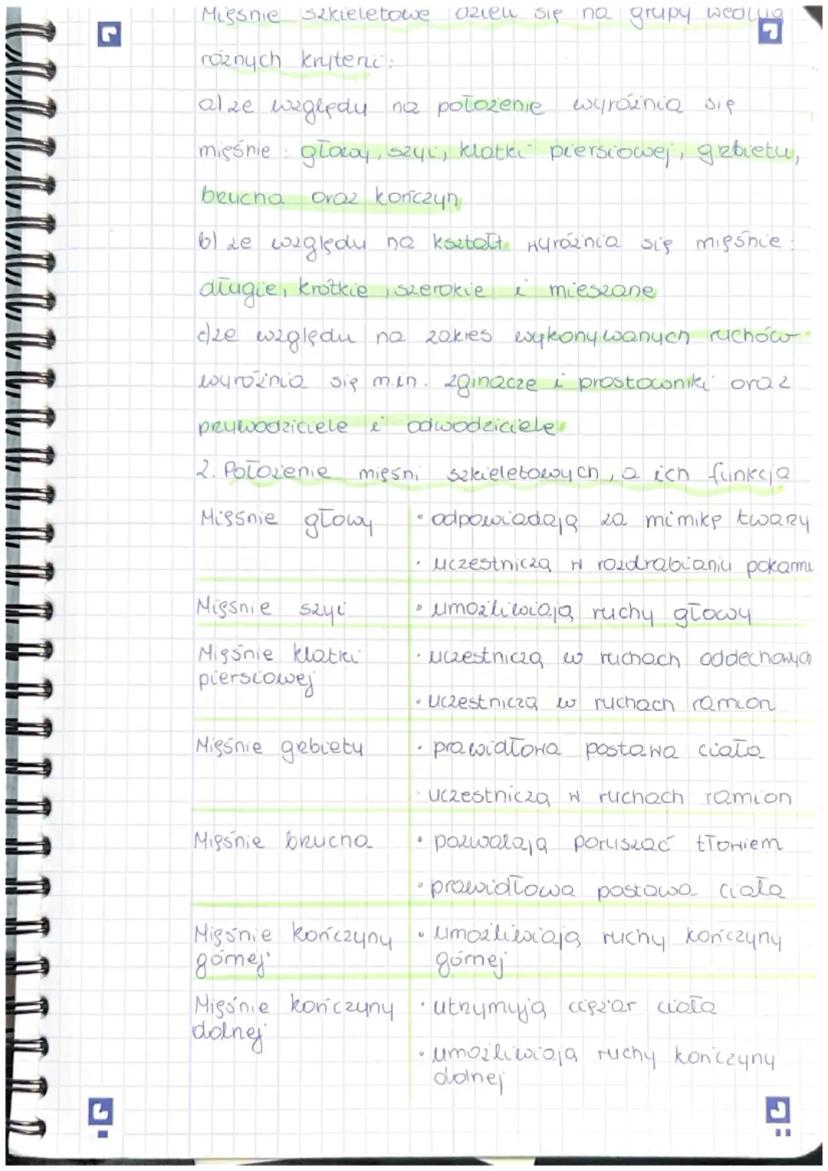 Mięśnie szkieletowe dzieli się na grupy według
różnych kryterii:
a) ze względu na położenie wyróżnia się
mięśnie: głowy, szyi, klatki piersiowej, grzbietu,
brzucha oraz kończyn
b) ze względu na kształt wyróżnia się mięśnie:
długie, krótkie, szerokie i mieszane
c) ze względu na zakres wykonywanych ruchów
wyróżnia się m.in. zginacze i prostowniki oraz
przywodziciele i odwodziciele
2. Położenie mięśni szkieletowych, a ich funkcja
Mięśnie głowy • odpowiadają za mimikę twarzy
• uczestniczą w rozdrabianiu pokarmu
Mięśnie szyi • umożliwiają ruchy głowy
Mięśnie klatki • uczestniczą w ruchach oddechowych
piersiowej
• uczestniczą w ruchach ramion
Mięśnie grzbietu • prawidłowa postawa ciała
• uczestniczą w ruchach ramion
Mięśnie brzucha • pozwalają poruszać tłowiem
• prawidłowa postawa ciała
Mięśnie kończyny • umożliwiają ruchy kończyny
górnej górnej
Mięśnie kończyny • utrzymują ciężar ciała
dolnej
• umożliwiają ruchy kończyny
dolnej